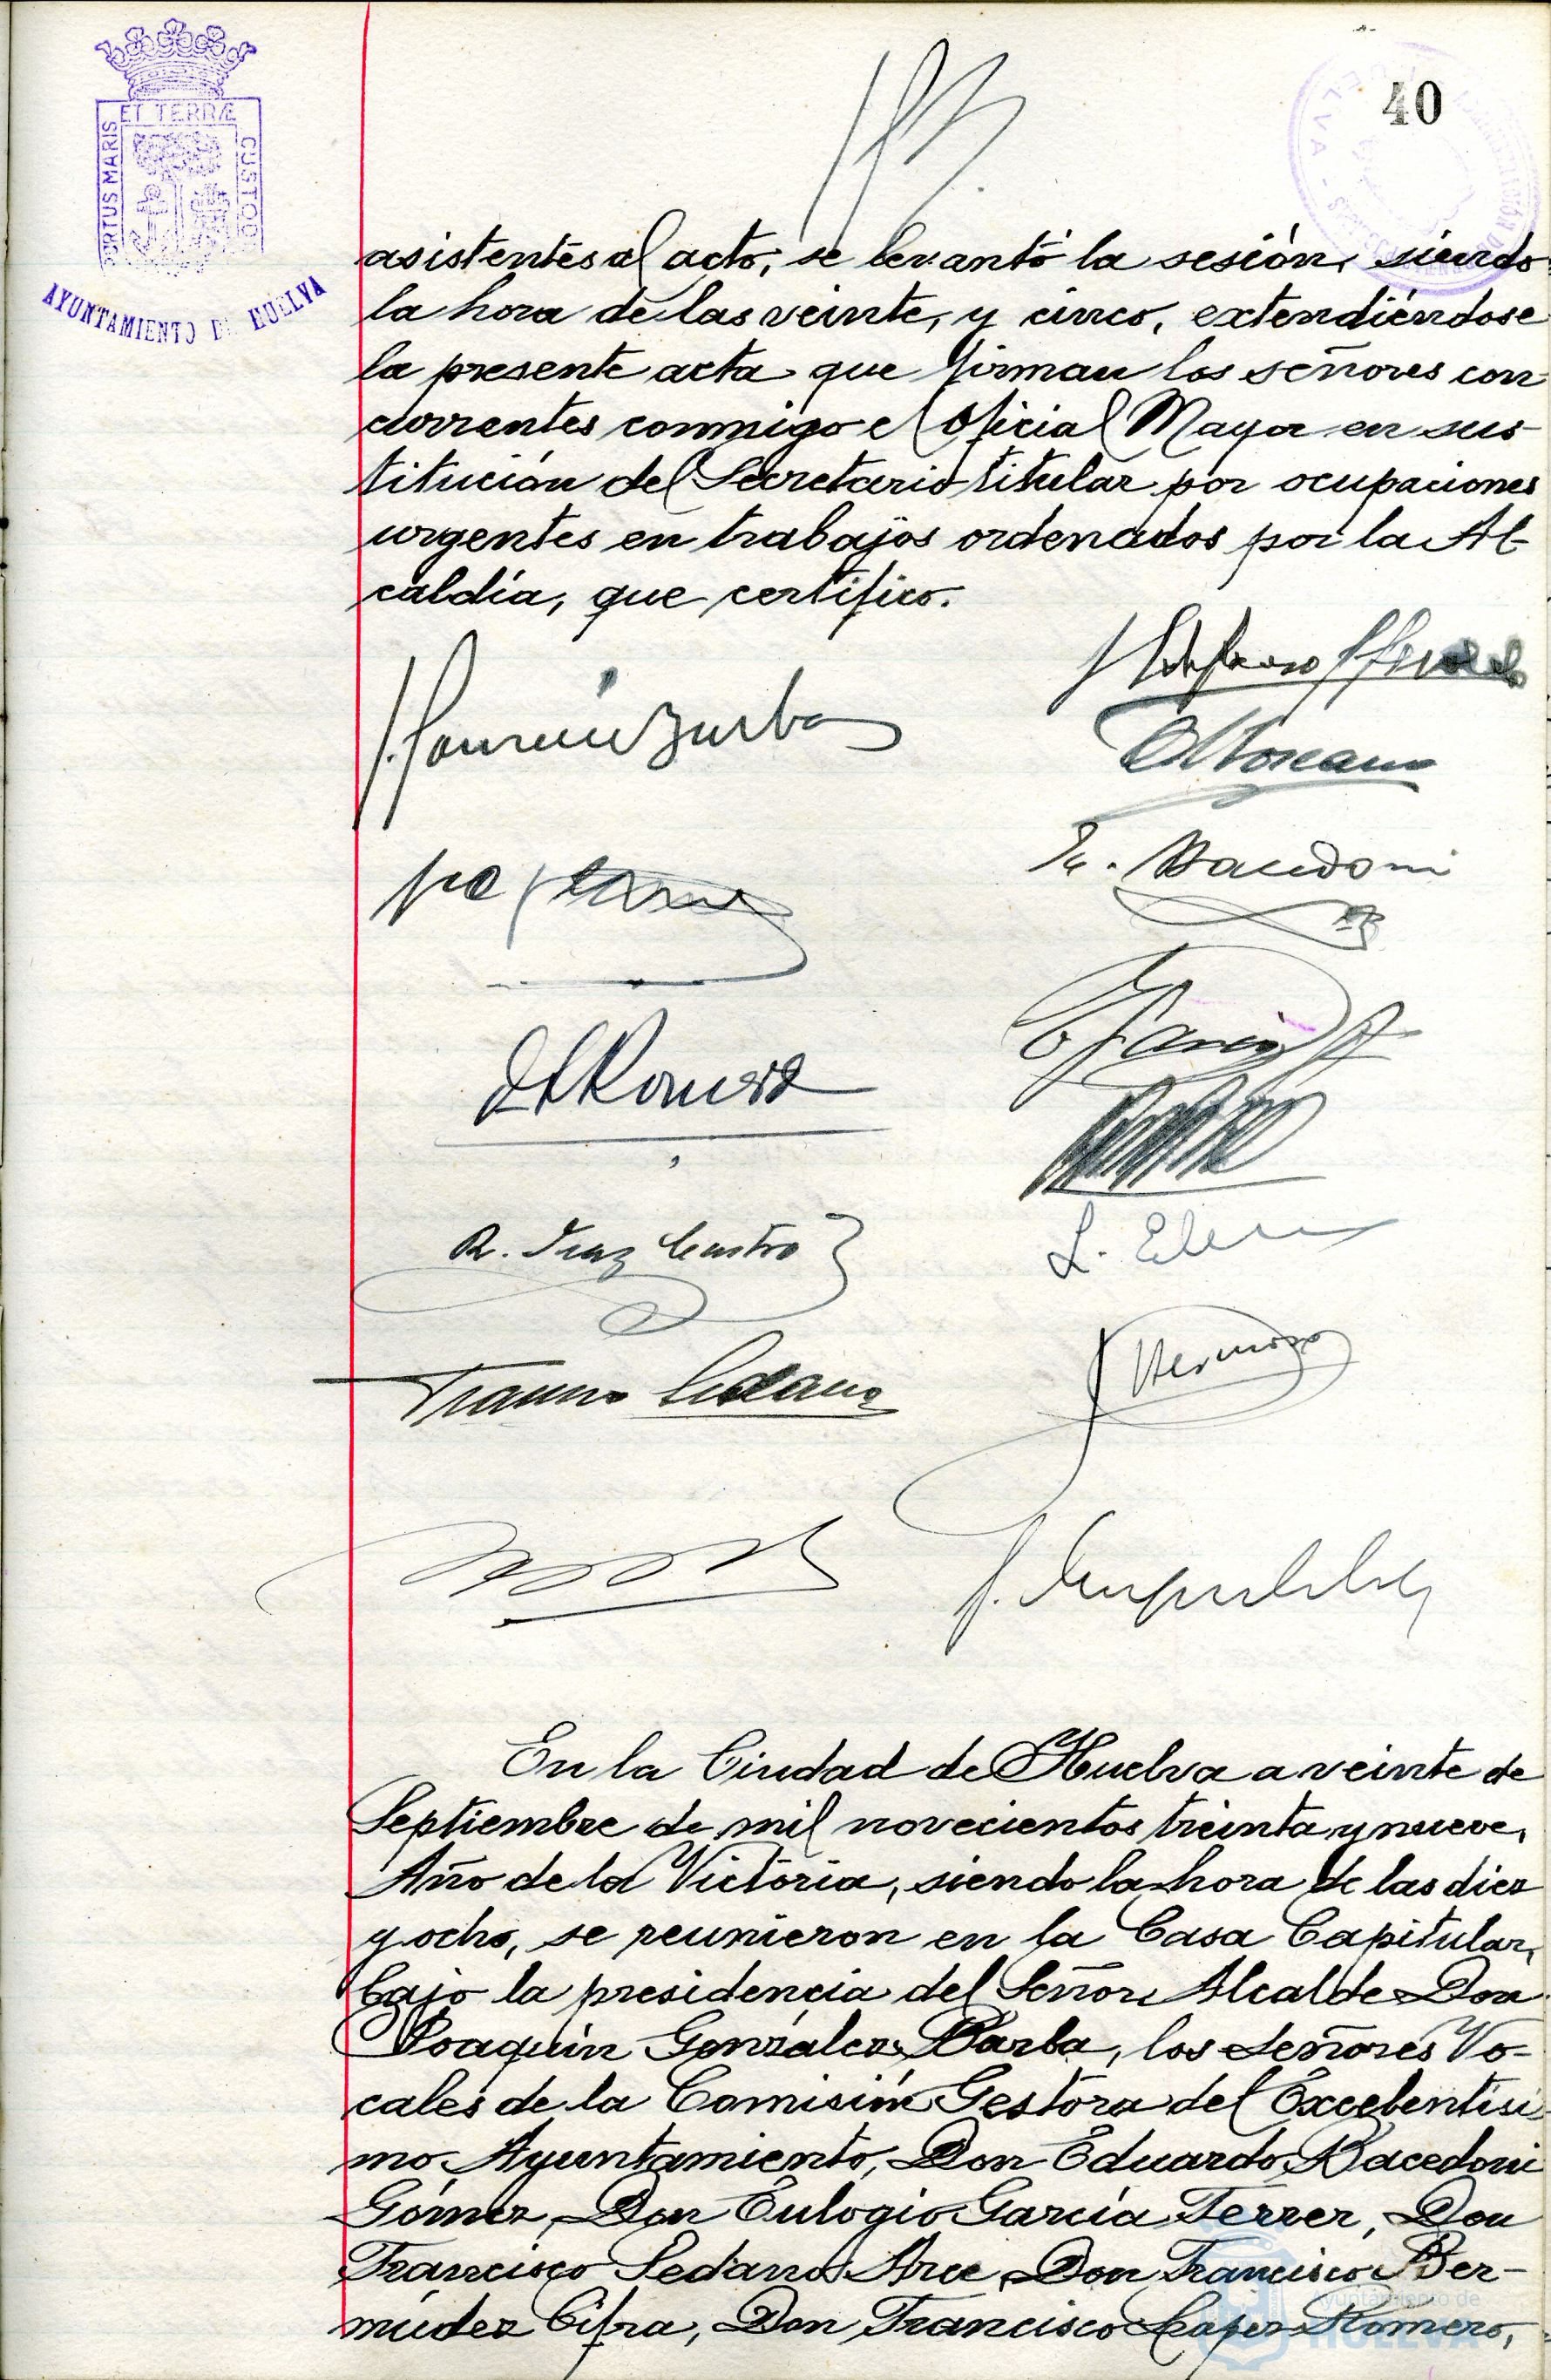 40
PORTUS MARIS
ET TERRÆ
CUSTODI
AYUNTAMIENTO DE HUELVA
asistentes al acto, se levantó la sesión, siendo
la hora de las veinte, y cinco, extendiéndose
la presente acta que firman los señores con
currentes conmigo el Oficial Mayor en sus-
titución del Secretario titular por ocupaciones
urgentes en trabajos ordenados por la Al-
caldía, que certifico.
R. Diaz Castro
L.
Hermoso
En la Ciudad de Huelva a veinte de
Septiembre de mil novecientos treinta y nueve,
Año de la Victoria, siendo la hora de las diez
y ocho, se reunieron en la Casa Capitular,
bajo la presidencia del Señor Alcalde Don
Joaquín González Barba, los señores Vo-
cales de la Comisión Gestora del Excelentísi-
mo Ayuntamiento, Don Eduardo Bacedoni
Gómez, Don Eulogio García Ferrer, Don
Francisco Sedano Arce, Don Francisco Ber-
múdez Cifra, Don Francisco Romero,
Ayuntamiento de
HUELVA